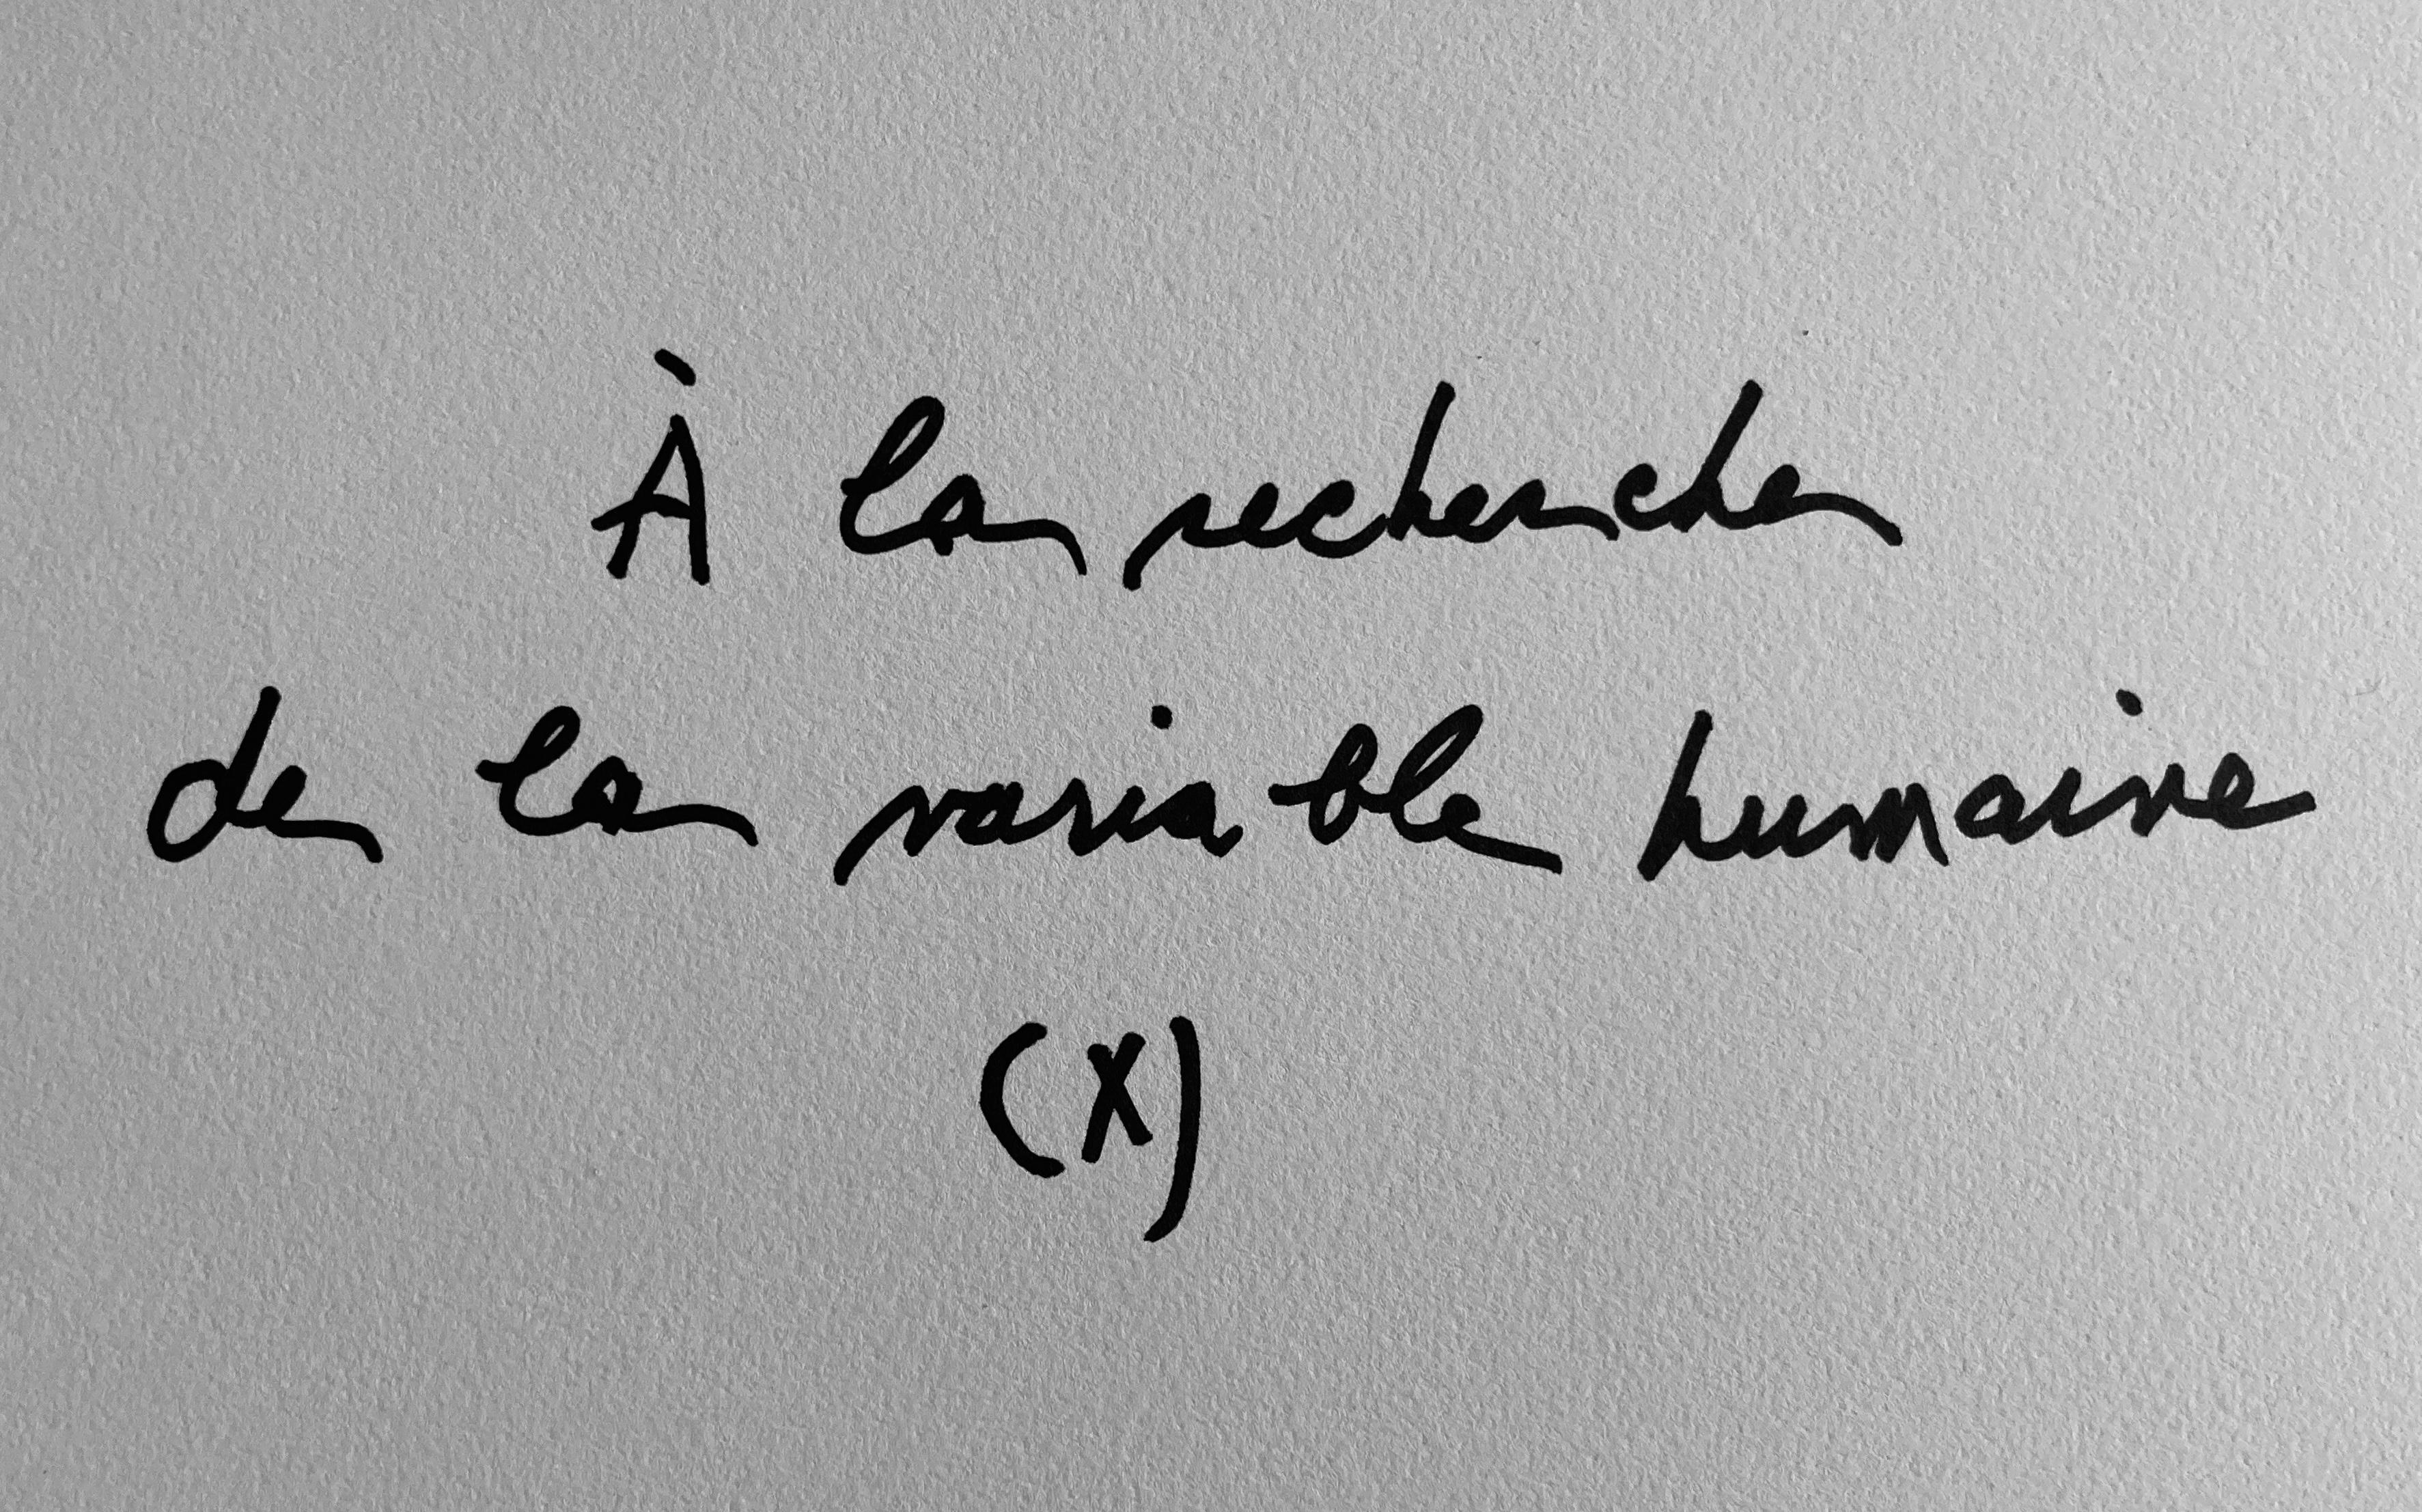 À la recherche
de la variable humaine
(X)